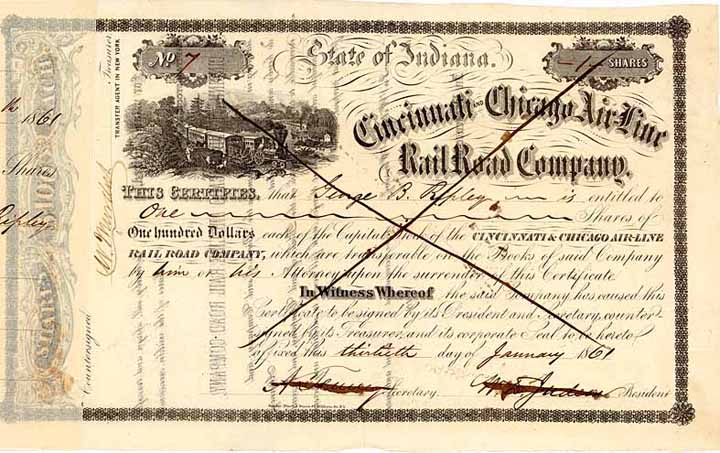 No 7
State of Indiana.
1 SHARES
Cincinnati AND Chicago Air-Line
Rail Road Company.
THIS CERTIFIES, that George B. Ripley is entitled to
One Shares of
One hundred Dollars each of the Capital Stock of the CINCINNATI & CHICAGO AIR-LINE
RAIL ROAD COMPANY, which are transferable on the Books of said Company
by him or his Attorney upon the surrender of this Certificate
In Witness Whereof the said Company has caused this
Certificate to be signed by its President and Secretary, counter-
signed by its Treasurer, and its corporate Seal to be hereto
affixed this thirtieth day of January 1861
Secretary. Judson President
Countersigned
Treasurer
TRANSFER AGENT IN NEW YORK
1861
Shares
Ripley